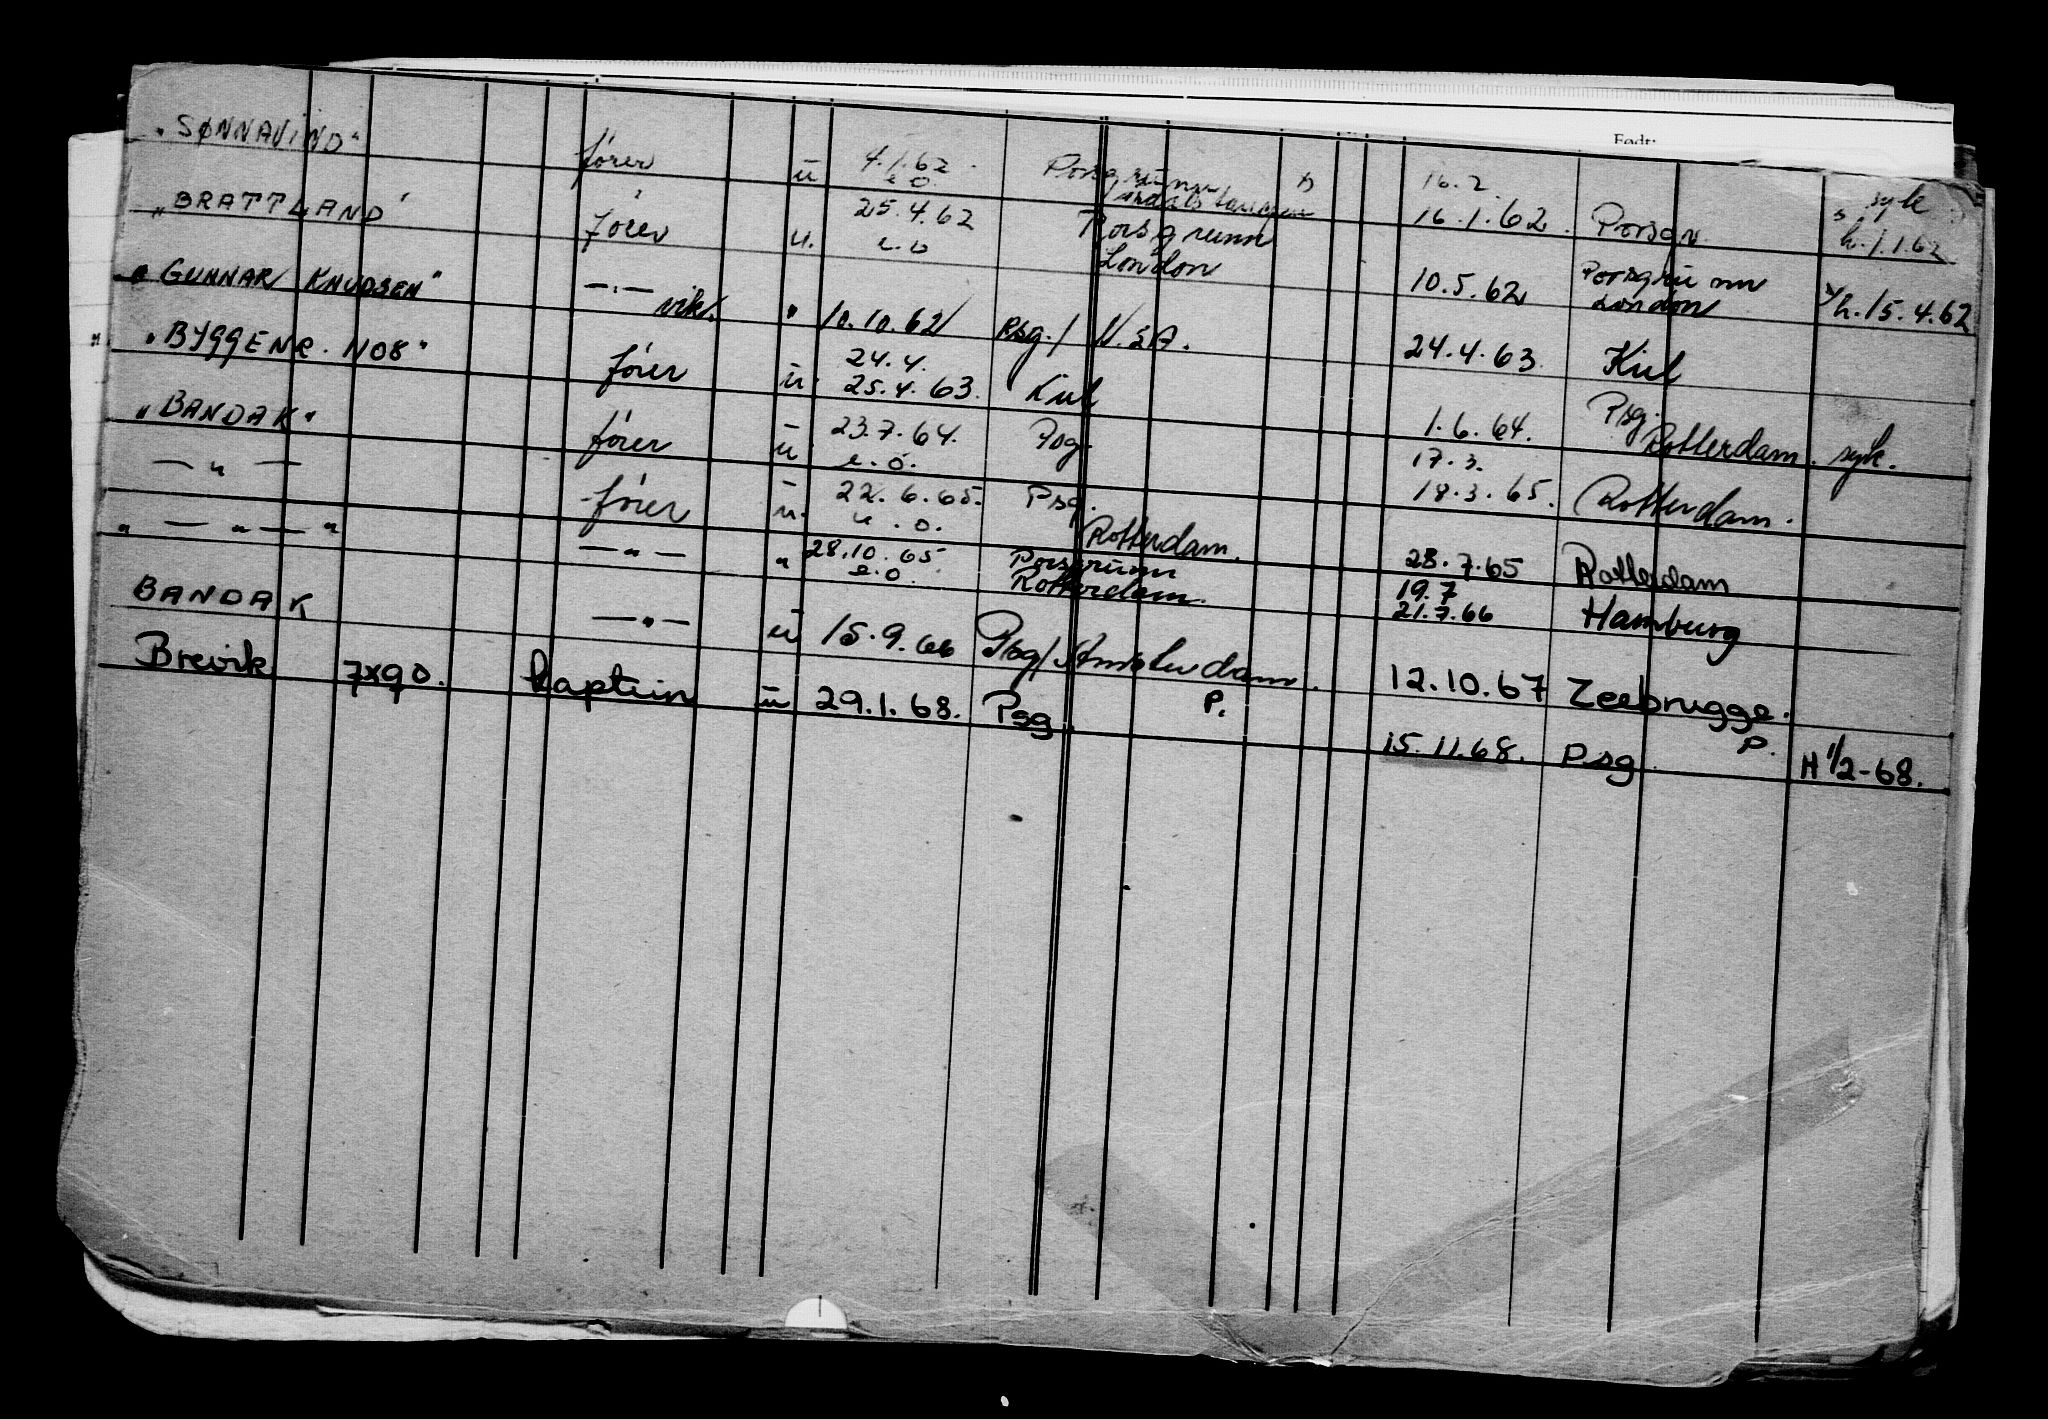 Født:
"SØNNAVIND" fører u 4.1.62 Porsgrunn 16.2. syk
e.o. 16.1.62. Porsgr. h.1.1.62
"BRATTLAND" fører u. 25.4.62 Porsgrunn 10.5.62 Porsgrunn h.15.4.62
e.o London London
"GUNNAR KNUDSEN" —"— vik. " 10.10.62 Psg./ U.S.A. 24.4.63 Kiel
"BYGGENR. 1108" fører u. 24.4. Kiel 1.6.64. Psg. syk.
25.4.63. Rotterdam.
"BANDAK" fører u 23.7.64. Psg. 17.3. Rotterdam.
e.o. 18.3.65.
— " — fører u. 22.6.65. Psg. 28.7.65 Rotterdam
u.o. Rotterdam.
" — " — " —"— " 28.10.65 Porsgrunn 19.7 Hamburg
e.o. Rotterdam. 21.7.66
BANDAK —"— u 15.9.66 Psg/Amsterdam. 12.10.67 Zeebrugge.
Brevik 7x90. kaptein u 29.1.68. Psg. P. 15.11.68. Psg. P. H 1/2-68.